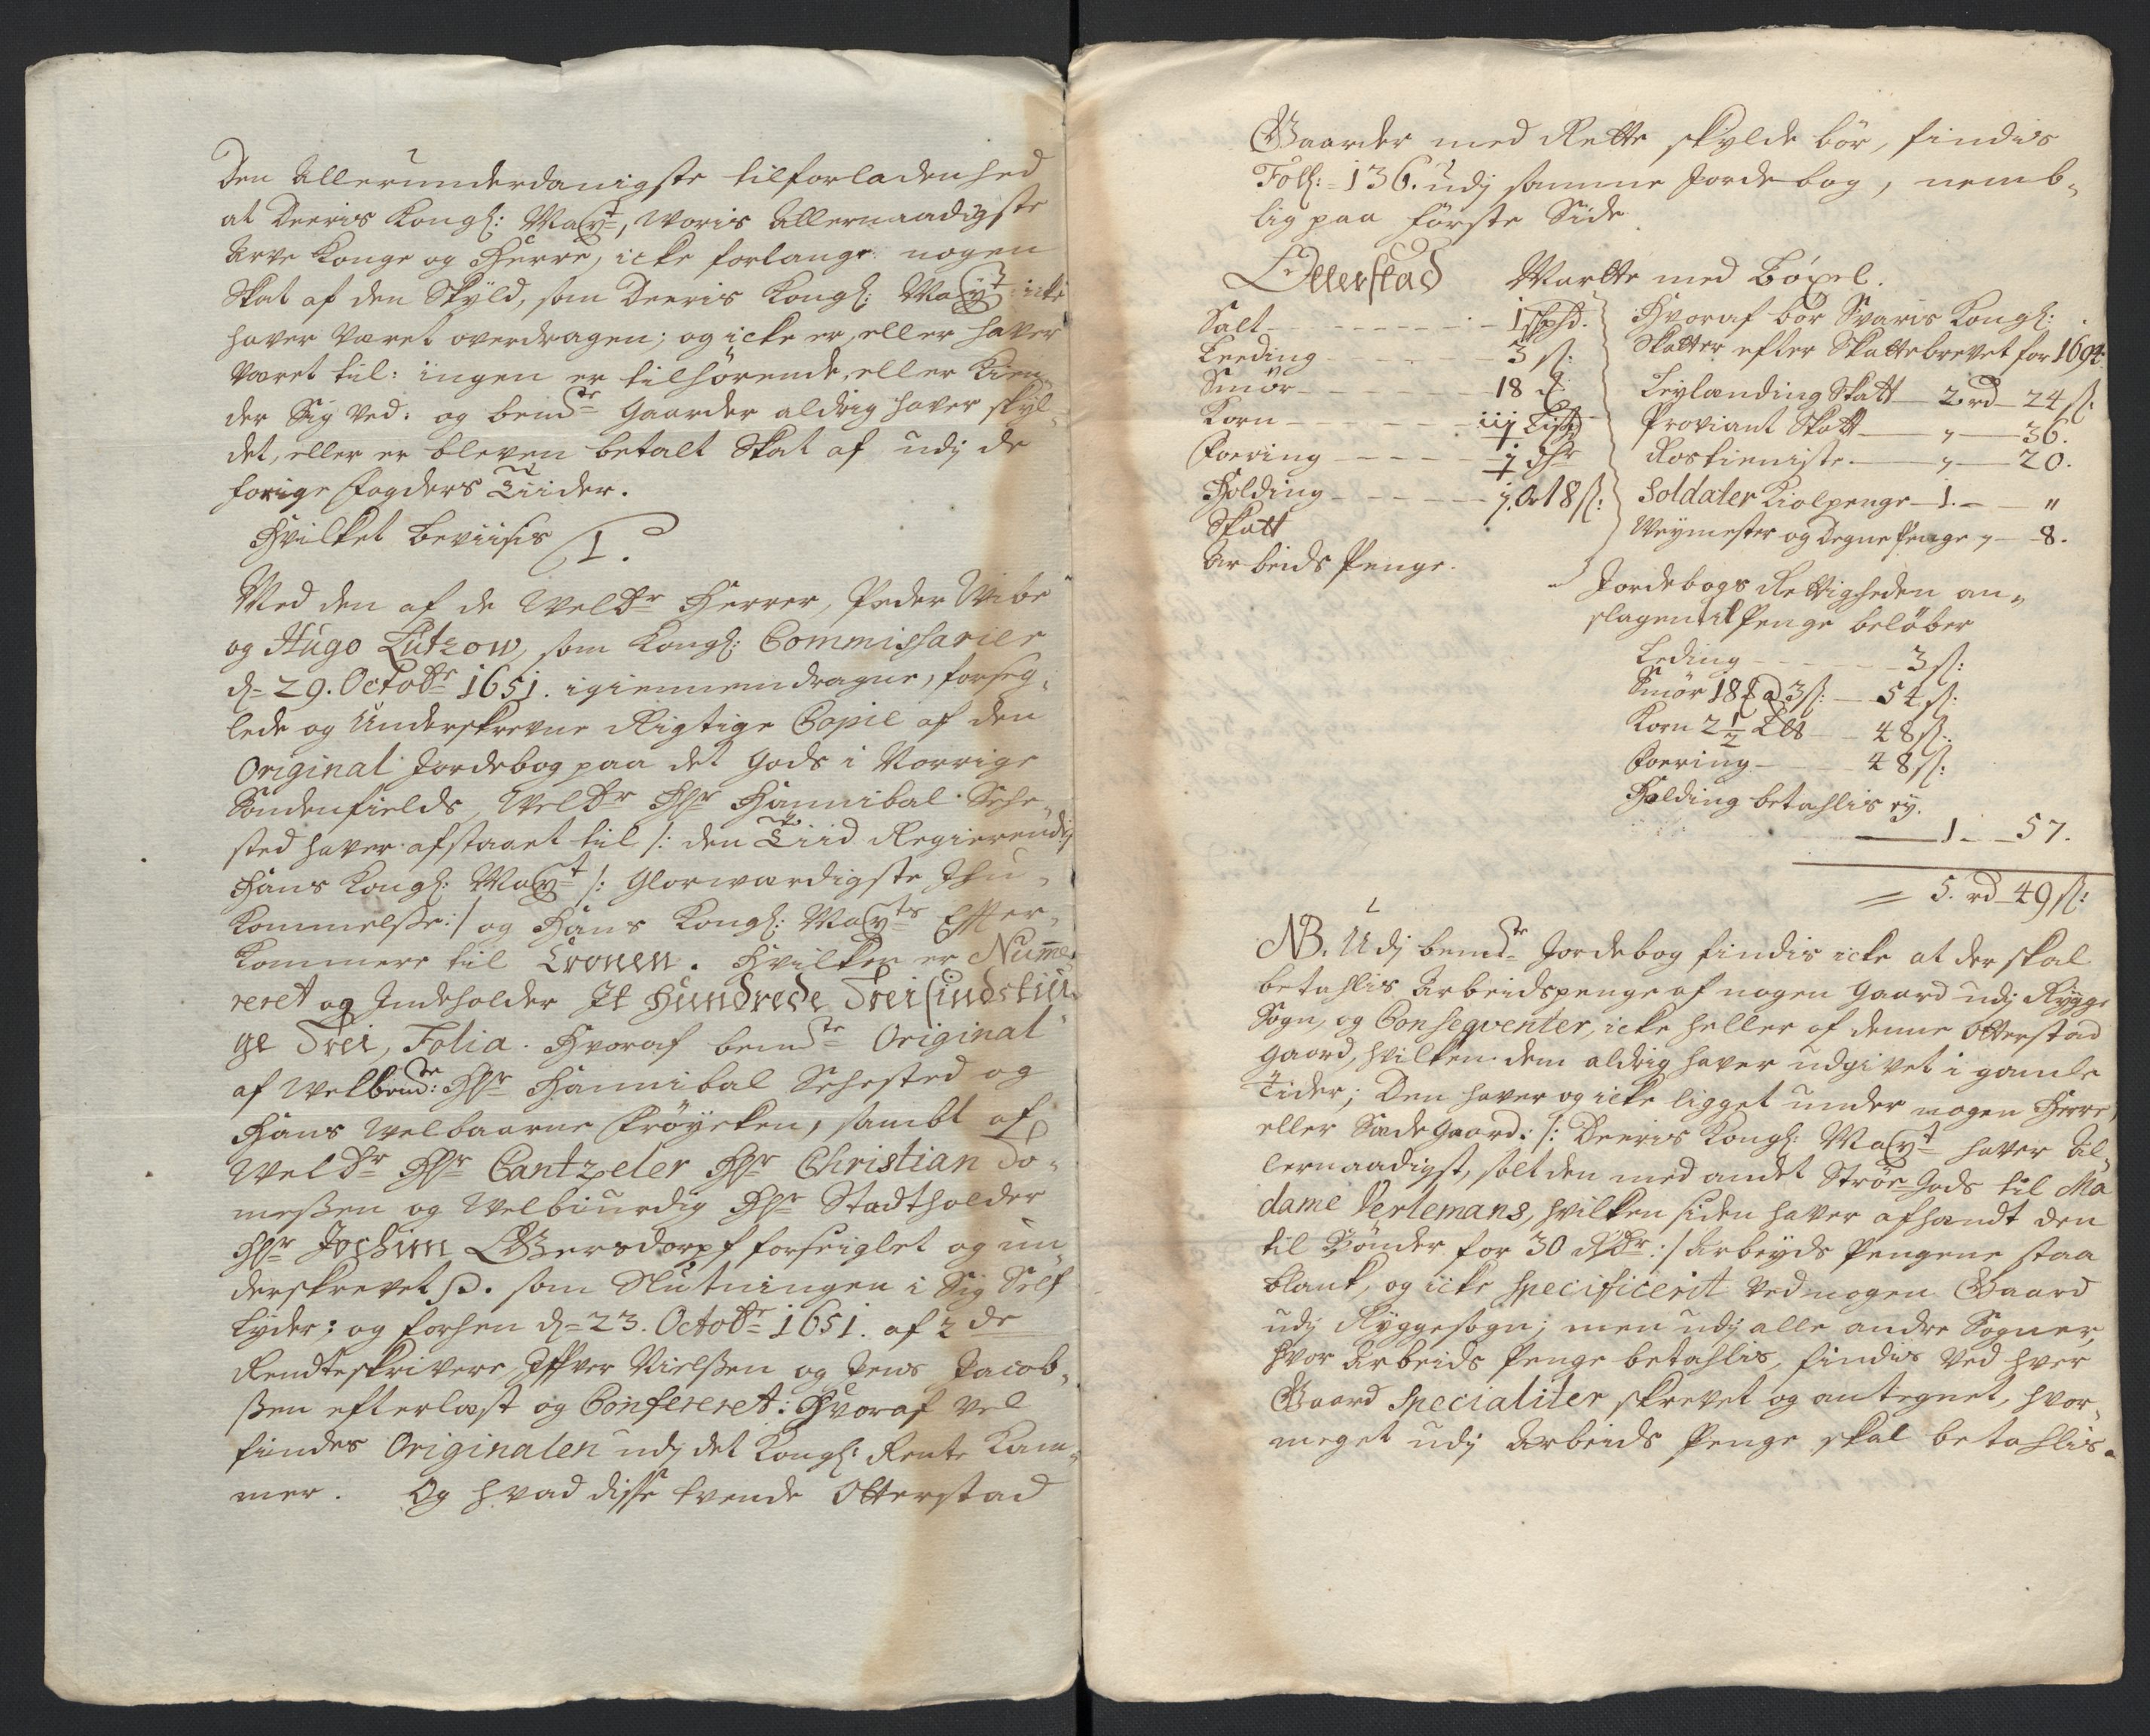 Den Allerunderdanigste tilforladenhed
at Deeris Kongl: Mayt, Woris Allernaadigste
Arve Konge og Herre, icke forlange nogen
Skat af den Skyld, som Deeris Kongl: Mayt icke
hafver været overdragen; og icke er, eller hafver
været til: ingen er tilhørende, eller kien
der sig ved: og bemte Gaarder aldrig hafver skyl-
det, eller er bleven betalt Skat af udj de
forige Fogders Tiider.
Hvilket beviisis 1.
Med den af de Welbr Herrer, Peder Wibe
og Hugo Lützow, som Kongl: Commissarier
d= 29. Octobr 1651. igiennemdragne, forseg-
lede og Underskrevne Rigtige Copie af den
Original Jordebog paa det Gods i Norrige
Søndenfields, Welbr Hr Hannibal Sehe-
sted hafver afstaaet til /: den Tiid Regierendis
Hans Kongl: Mayt /: Glorwærdigste Ihu-
kommelse :/ og Hans Kongl: Mayts Effter-
kommere til Cronen. Hvilken er Numme-
reret og Indeholder It Hundrede Treisindstiu-
ge Trei, Folia. Hvoraf bemte Original
af Welbemte: Hr Hannibal Sehested og
Hans Welbaarne Frøycken, sambt af
Welbr Hr Cantzeler Hr Christian To-
meßen og Welbiurdig Hr Stadtholder
Hr Jochim Gersdorpf forseiglet og un-
derskrevet p. som Slutningen i Sig Self
Lyder: og forhen d= 23. Octobr 1651. af 2de
Rendteskrivere Iffver Nielßen og Jens Jacob-
ßen efterlæst og Confereret: Hvoraf vel
findes Originalen udj det Kongl: Rente Kam-
mer. Og hvad disse tvende Otterstad
Gaarder med Rette skylde bør, findis
Foll: 136. udj samme Jordebog, nemb-
lig paa første Side
Otterstad Martte med Bøxel.
Salt - - - 1 shpd.
Leeding - - - 3 ß:
Smör - - - 18 ℔
Korn - - -
Foering - - -
Holding - - - 18 ß:
Skatt
Arbeids Penge.
Hvoraf bør Svaris Kongl:
Skatter efter Skattebrevet for 1694
Leylænding Skatt — 2 rd — 24 ß:
Proviant Skatt — „ — 36.
Rostieniste — „ — 20.
Soldater Kiolpenge — 1. — „
Weymester og Degne Penge „ — 8.
Jordebogs Rettigheden an-
slagen til Penge beløber
Leding - - - 3 ß:
Smör 18 ℔ a 3 ß: — 54 ß:
Korn 2 1/2 - - 48 ß:
Foering - - - 48 ß:
Holding betahlis ey.
— 1 — 57.
= 5. rd 49 ß:
NB. Udj bemte Jordebog findis icke at der skal
betahlis Arbeidspenge af nogen Gaard udj Rygge
Sogn, og Conseqventer, icke heller af denne Otterstad
Gaard, hvilken dem aldrig hafver udgivet i gamle
Tider; Den hafver og icke ligget under nogen Herre,
eller Sædegaard: /: Deeris Kongl: Mayt hafver Al-
lernaadigst, solt den med andet Strøe Gods til Ma
dame Vertemans, hvilken siden hafver afhandt den
til Bönder for 30 Rdr :/ Arbeyds Pengene staa
blank, og icke specificerit ved nogen Gaard
udj Ryggesogn; men udj alle andre Sogner,
hvor Arbeids Penge betahlis, findis ved hver
Gaard specialiter skrevet og antegnet, hvor-
meget udj Arbeids Penge skal betahlis.